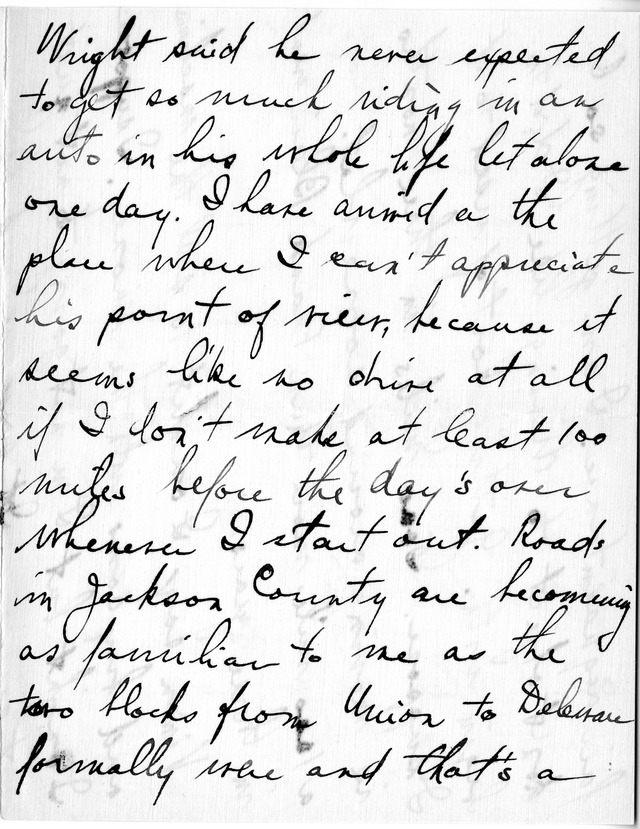 Wright said he never expected
to get so much riding in an
auto in his whole life let alone
one day. I have arrived a the
place where I can't appreciate
his point of view, because it
seems like no drive at all
if I don't make at least 100
miles before the day's over
whenever I start out. Roads
in Jackson County are becoming
as familiar to me as the
two blocks from Union to Delaware
formally were and that's a